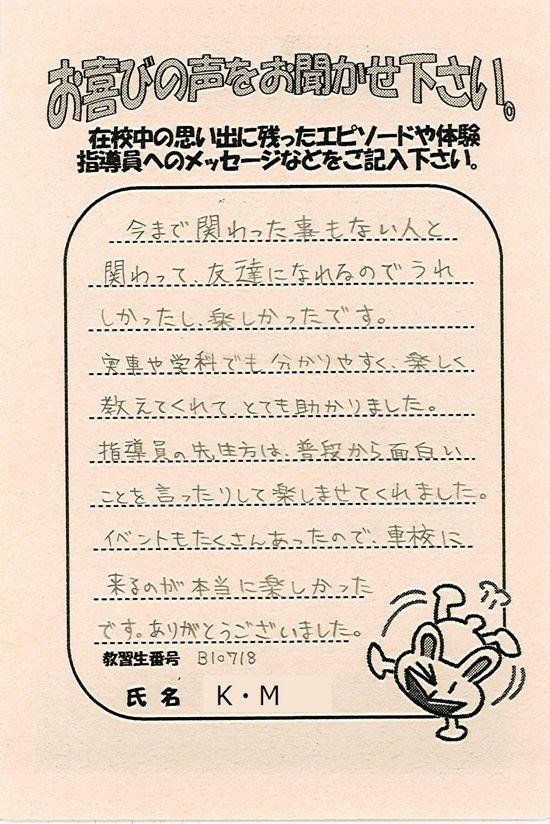 お喜びの声をお聞かせ下さい。
在校中の思い出に残ったエピソードや体験
指導員へのメッセージなどをご記入下さい。
今まで関わった事もない人と
関わって、友達になれるのでうれ
しかったし、楽しかったです。
実車や学科でも分かりやすく、楽しく
教えてくれて、とても助かりました。
指導員の先生方は、普段から面白い
ことを言ったりして楽しませてくれました。
イベントもたくさんあったので、車校に
来るのが本当に楽しかった
です。ありがとうございました。
教習生番号 B10718
氏名 K・M